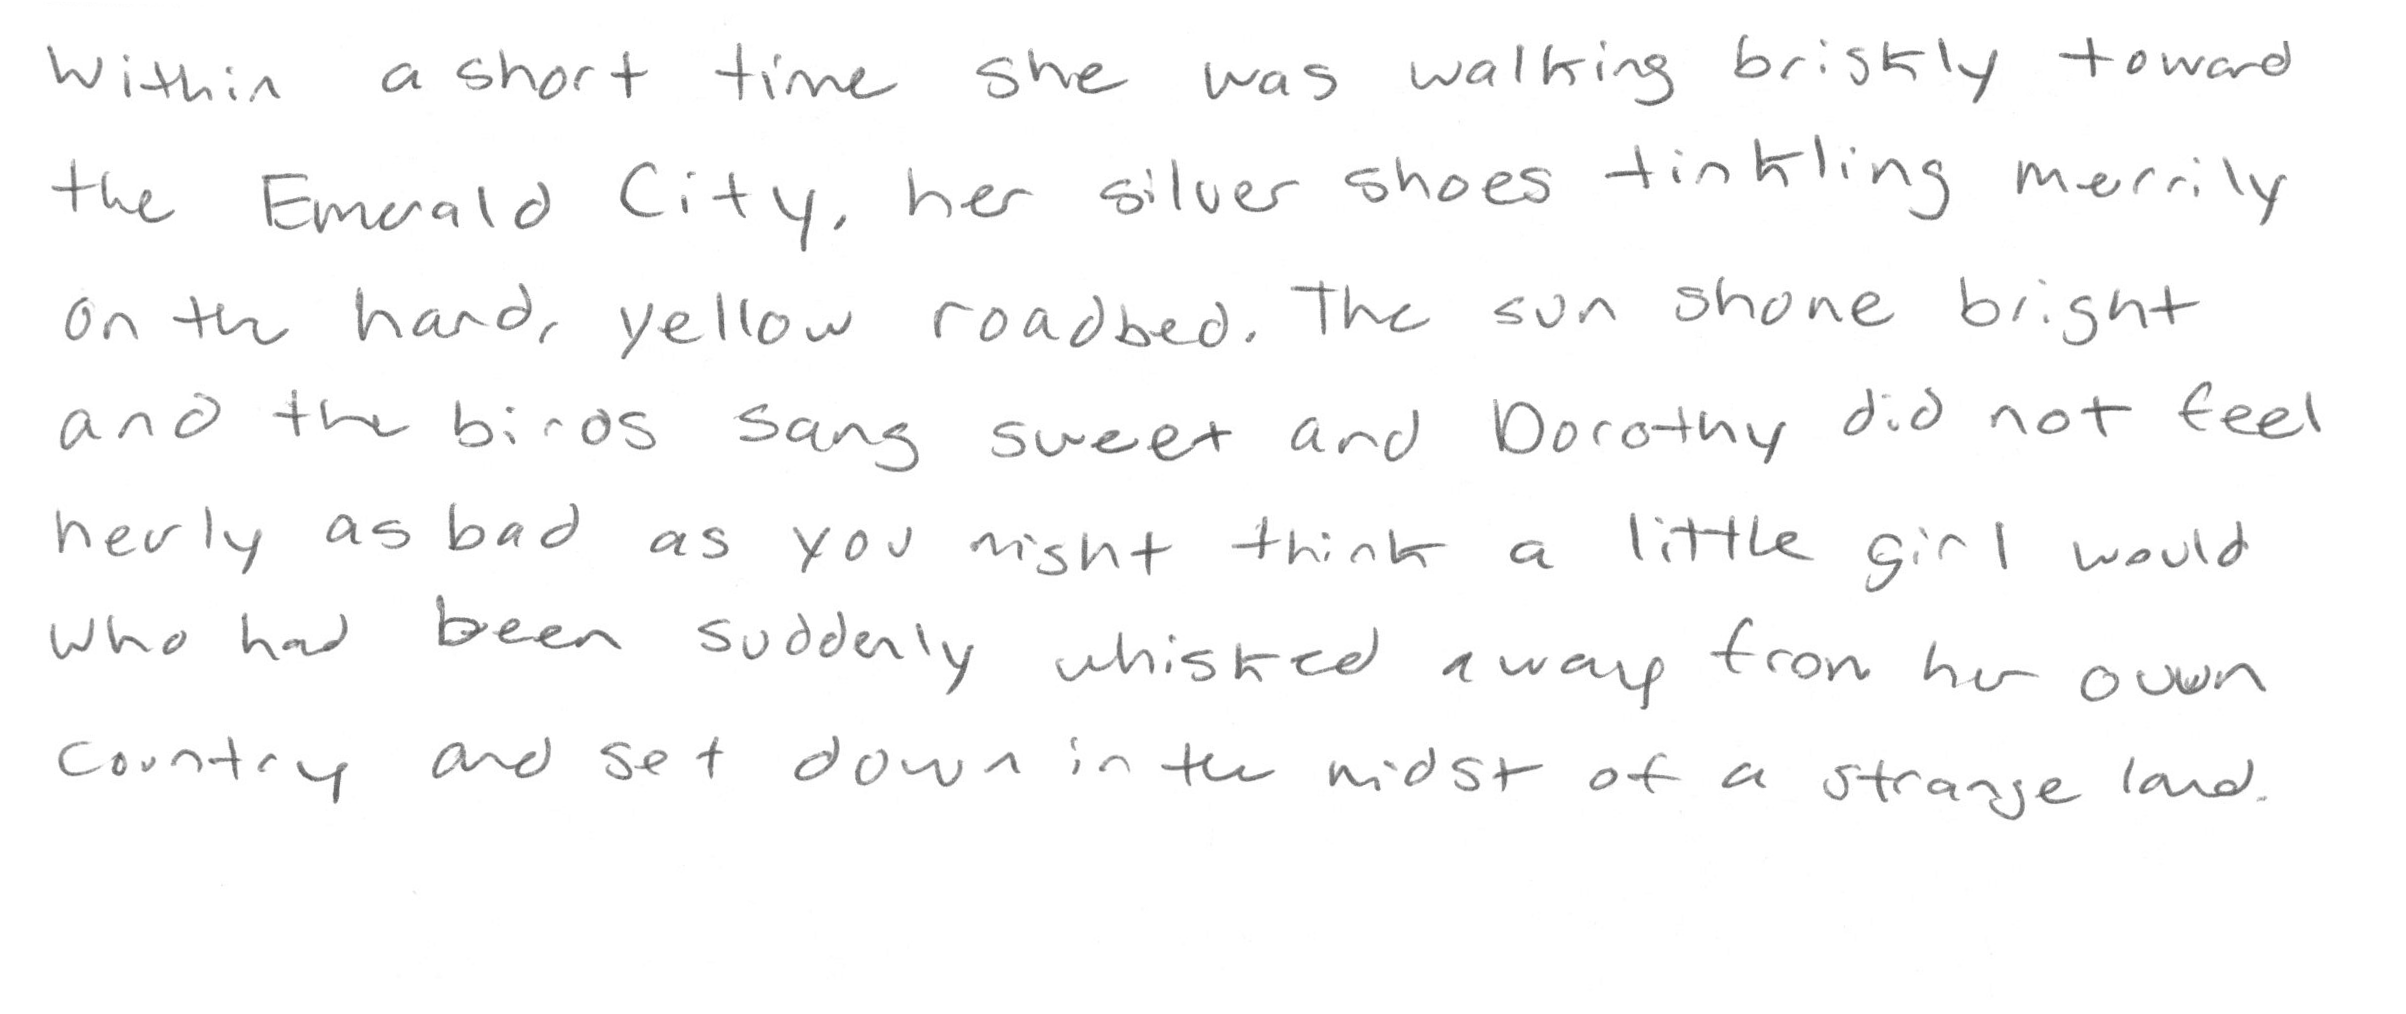 Within a short time she was walking briskly toward
the Emerald City, her silver shoes tinkling merrily
on the hard, yellow roadbed. The sun shone bright
and the birds sang sweet and Dorothy did not feel
nerly as bad as you might think a little girl would
who had been suddenly whisked away from her own
country and set down in the midst of a strange land.